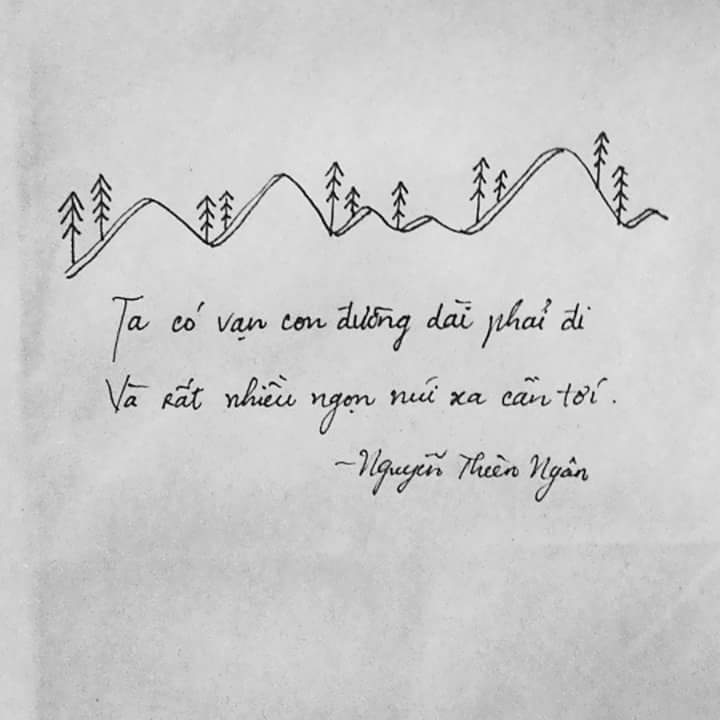 Ta có vạn con đường dài phải đi
Và rất nhiều ngọn núi xa cần tới.
~Nguyễn Thiên Ngân